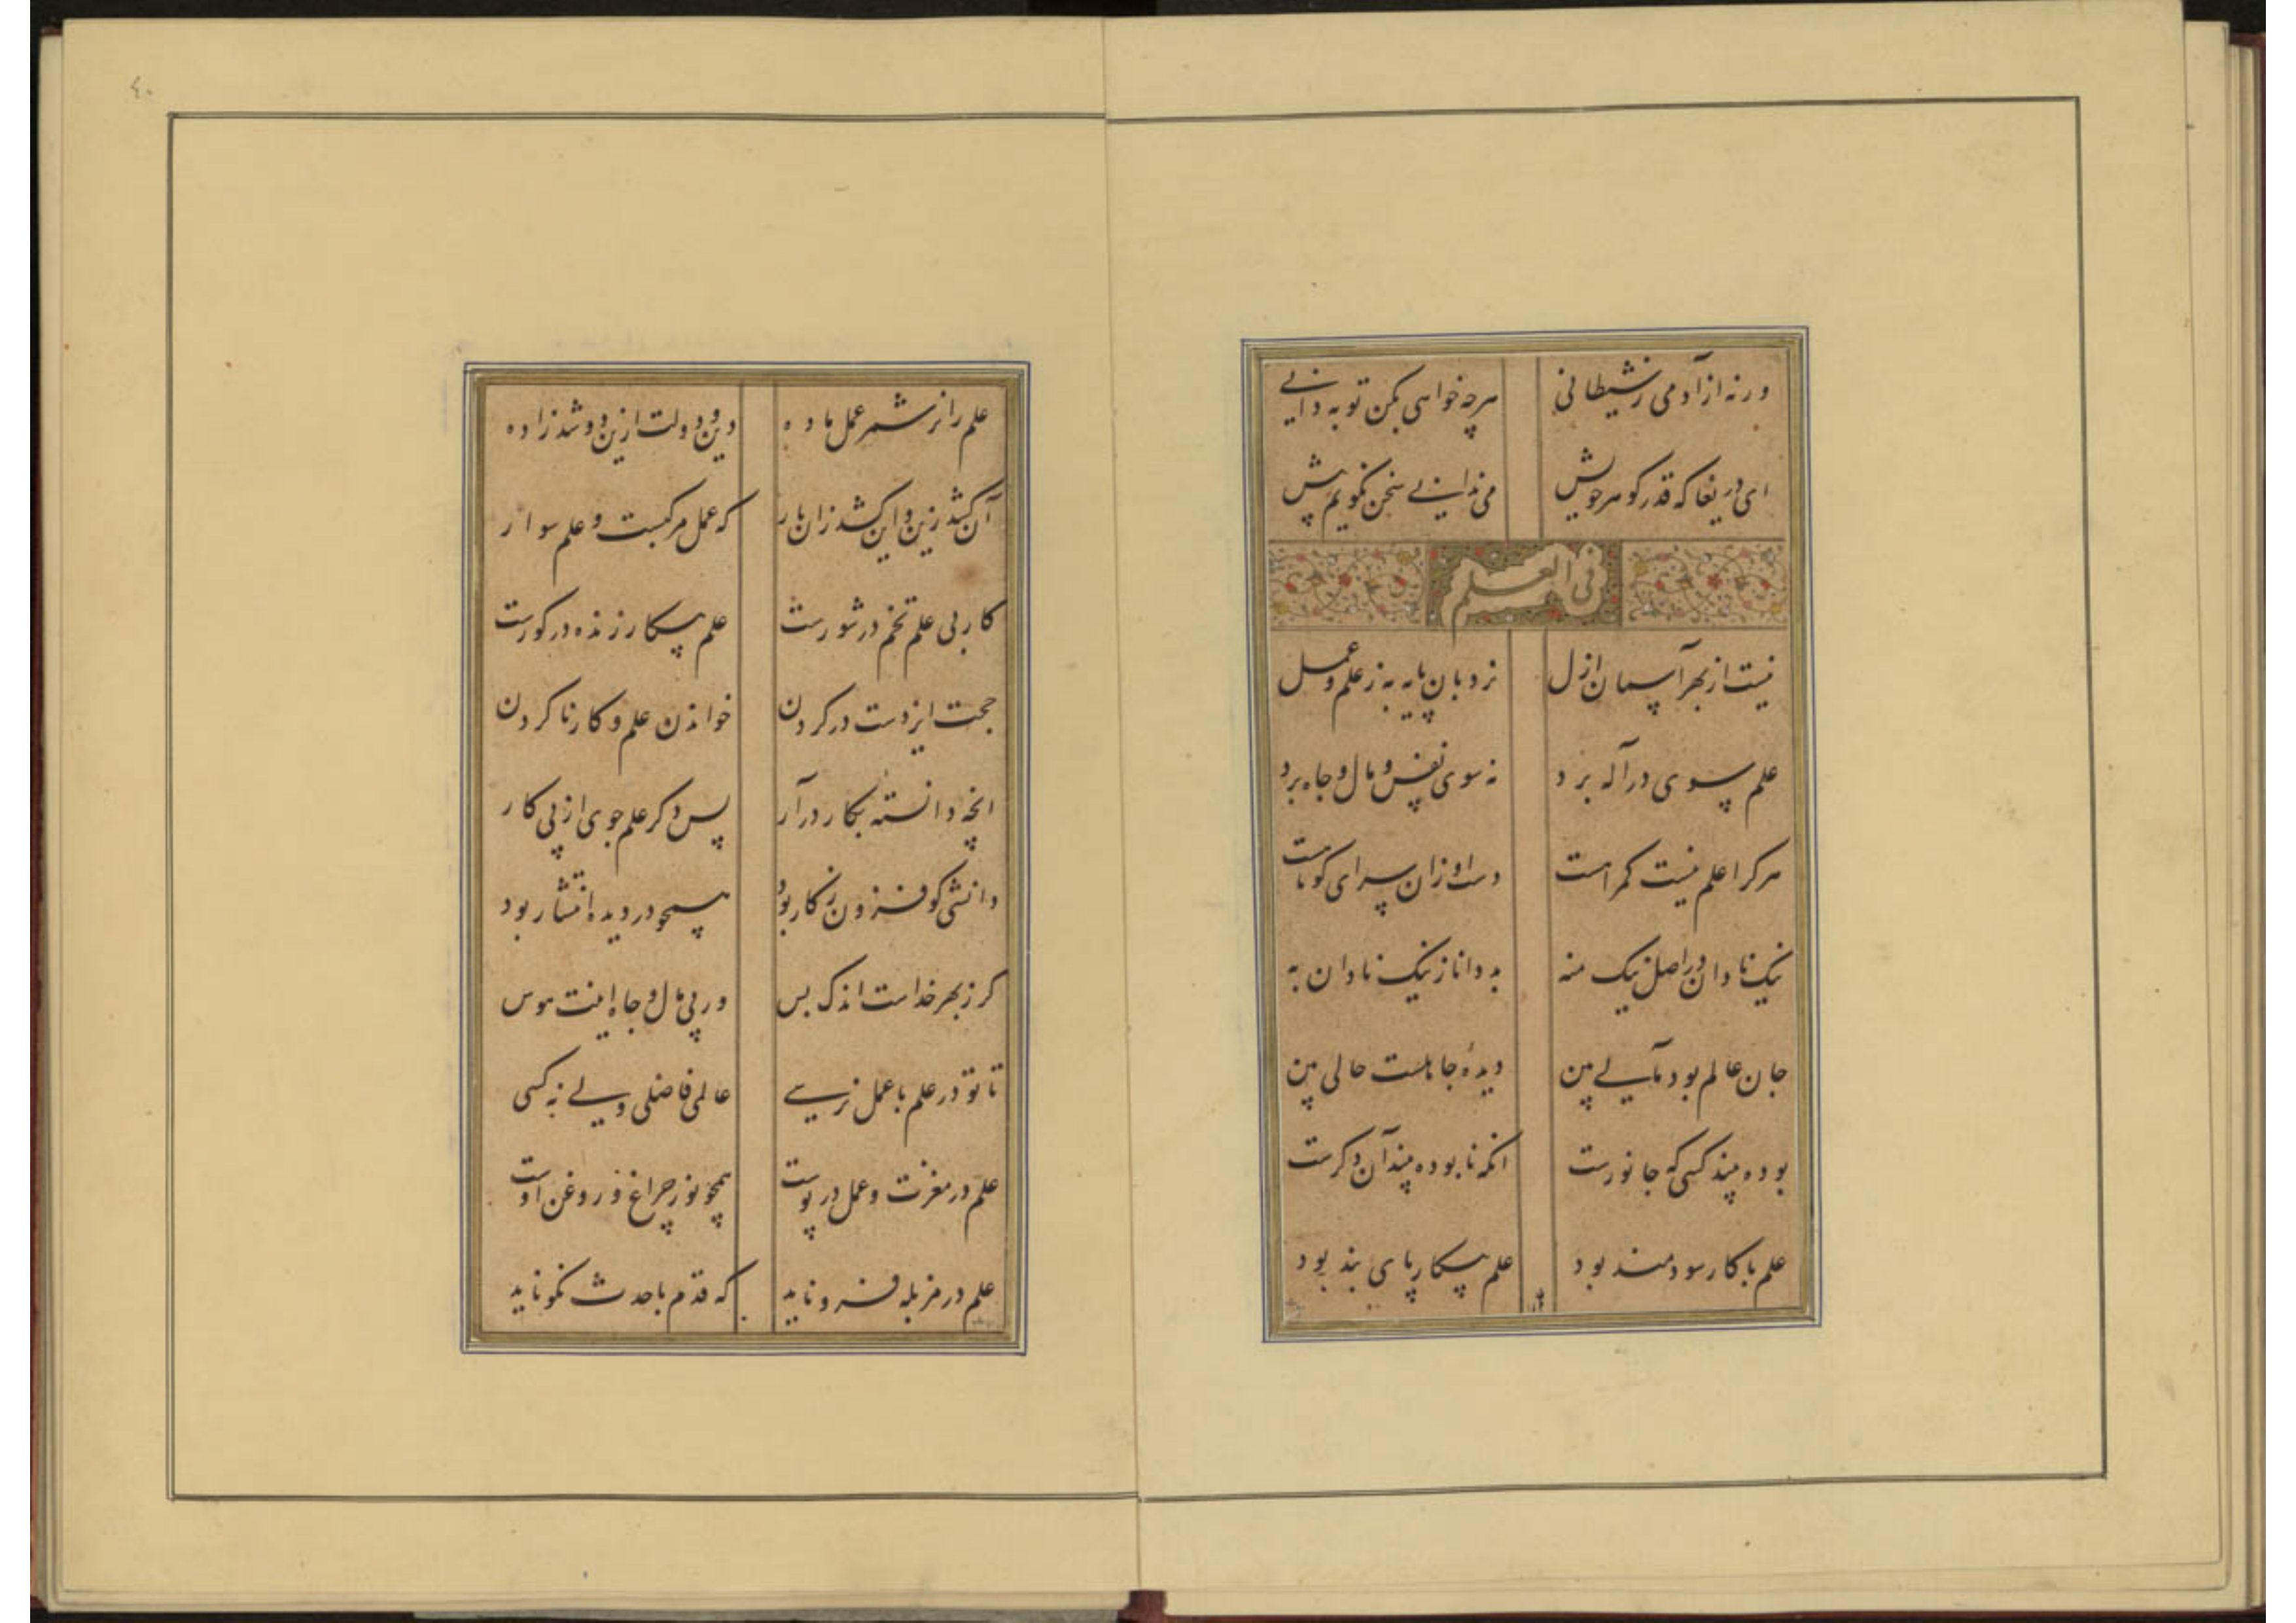 ورنه از آدمی ز شیطانی هرچه خواهی بکن تو به دانی
ای دریغا که قدر گوهر خویش می ندانی سخن نگویم بیش
فی العلم
نیست از بهر آسمان ازل نردبان پایه به ز علم و عمل
علم سوی در اله برد نه سوی نفس و مال و جاه برد
هرکرا علم نیست گمراهست دست او زان سرای کوتاهست
نیک نادان در اصل نیک منه بد دانا ز نیک نادان به
جان عالم بود مآلی بین دیده جاهلست حالی بین
بوده بیند کسی که جانورست آنکه نابوده بیند آن دگرست
علم با کار سودمند بود علم بیکار پای بند بود
٤٠
علم را نر شمر عمل ماده دین و دولت ازین دو شد زاده
آن کشد زین و این کشد زان بار که عمل مرکبست و علم سوار
کار بی علم تخم در شورست علم بیکار زنده در گورست
حجت ایزدست در گردن خواندن علم و کار ناکردن
آنچه دانسته بکار درآر پس دگر علم جوی از پی کار
دانشی کو فزون ز کار بود همچو در دیده انتشار بود
گر ز بهر خداست اندک بس ور پی مال و جاه اینت هوس
تا تو در علم با عمل نرسی عالمی فاضلی ولی نه کسی
علم در مغزت و عمل در پوست همچو نور چراغ و روغن اوست
علم در مزبله فرو ناید که قدم با حدث نکو ناید